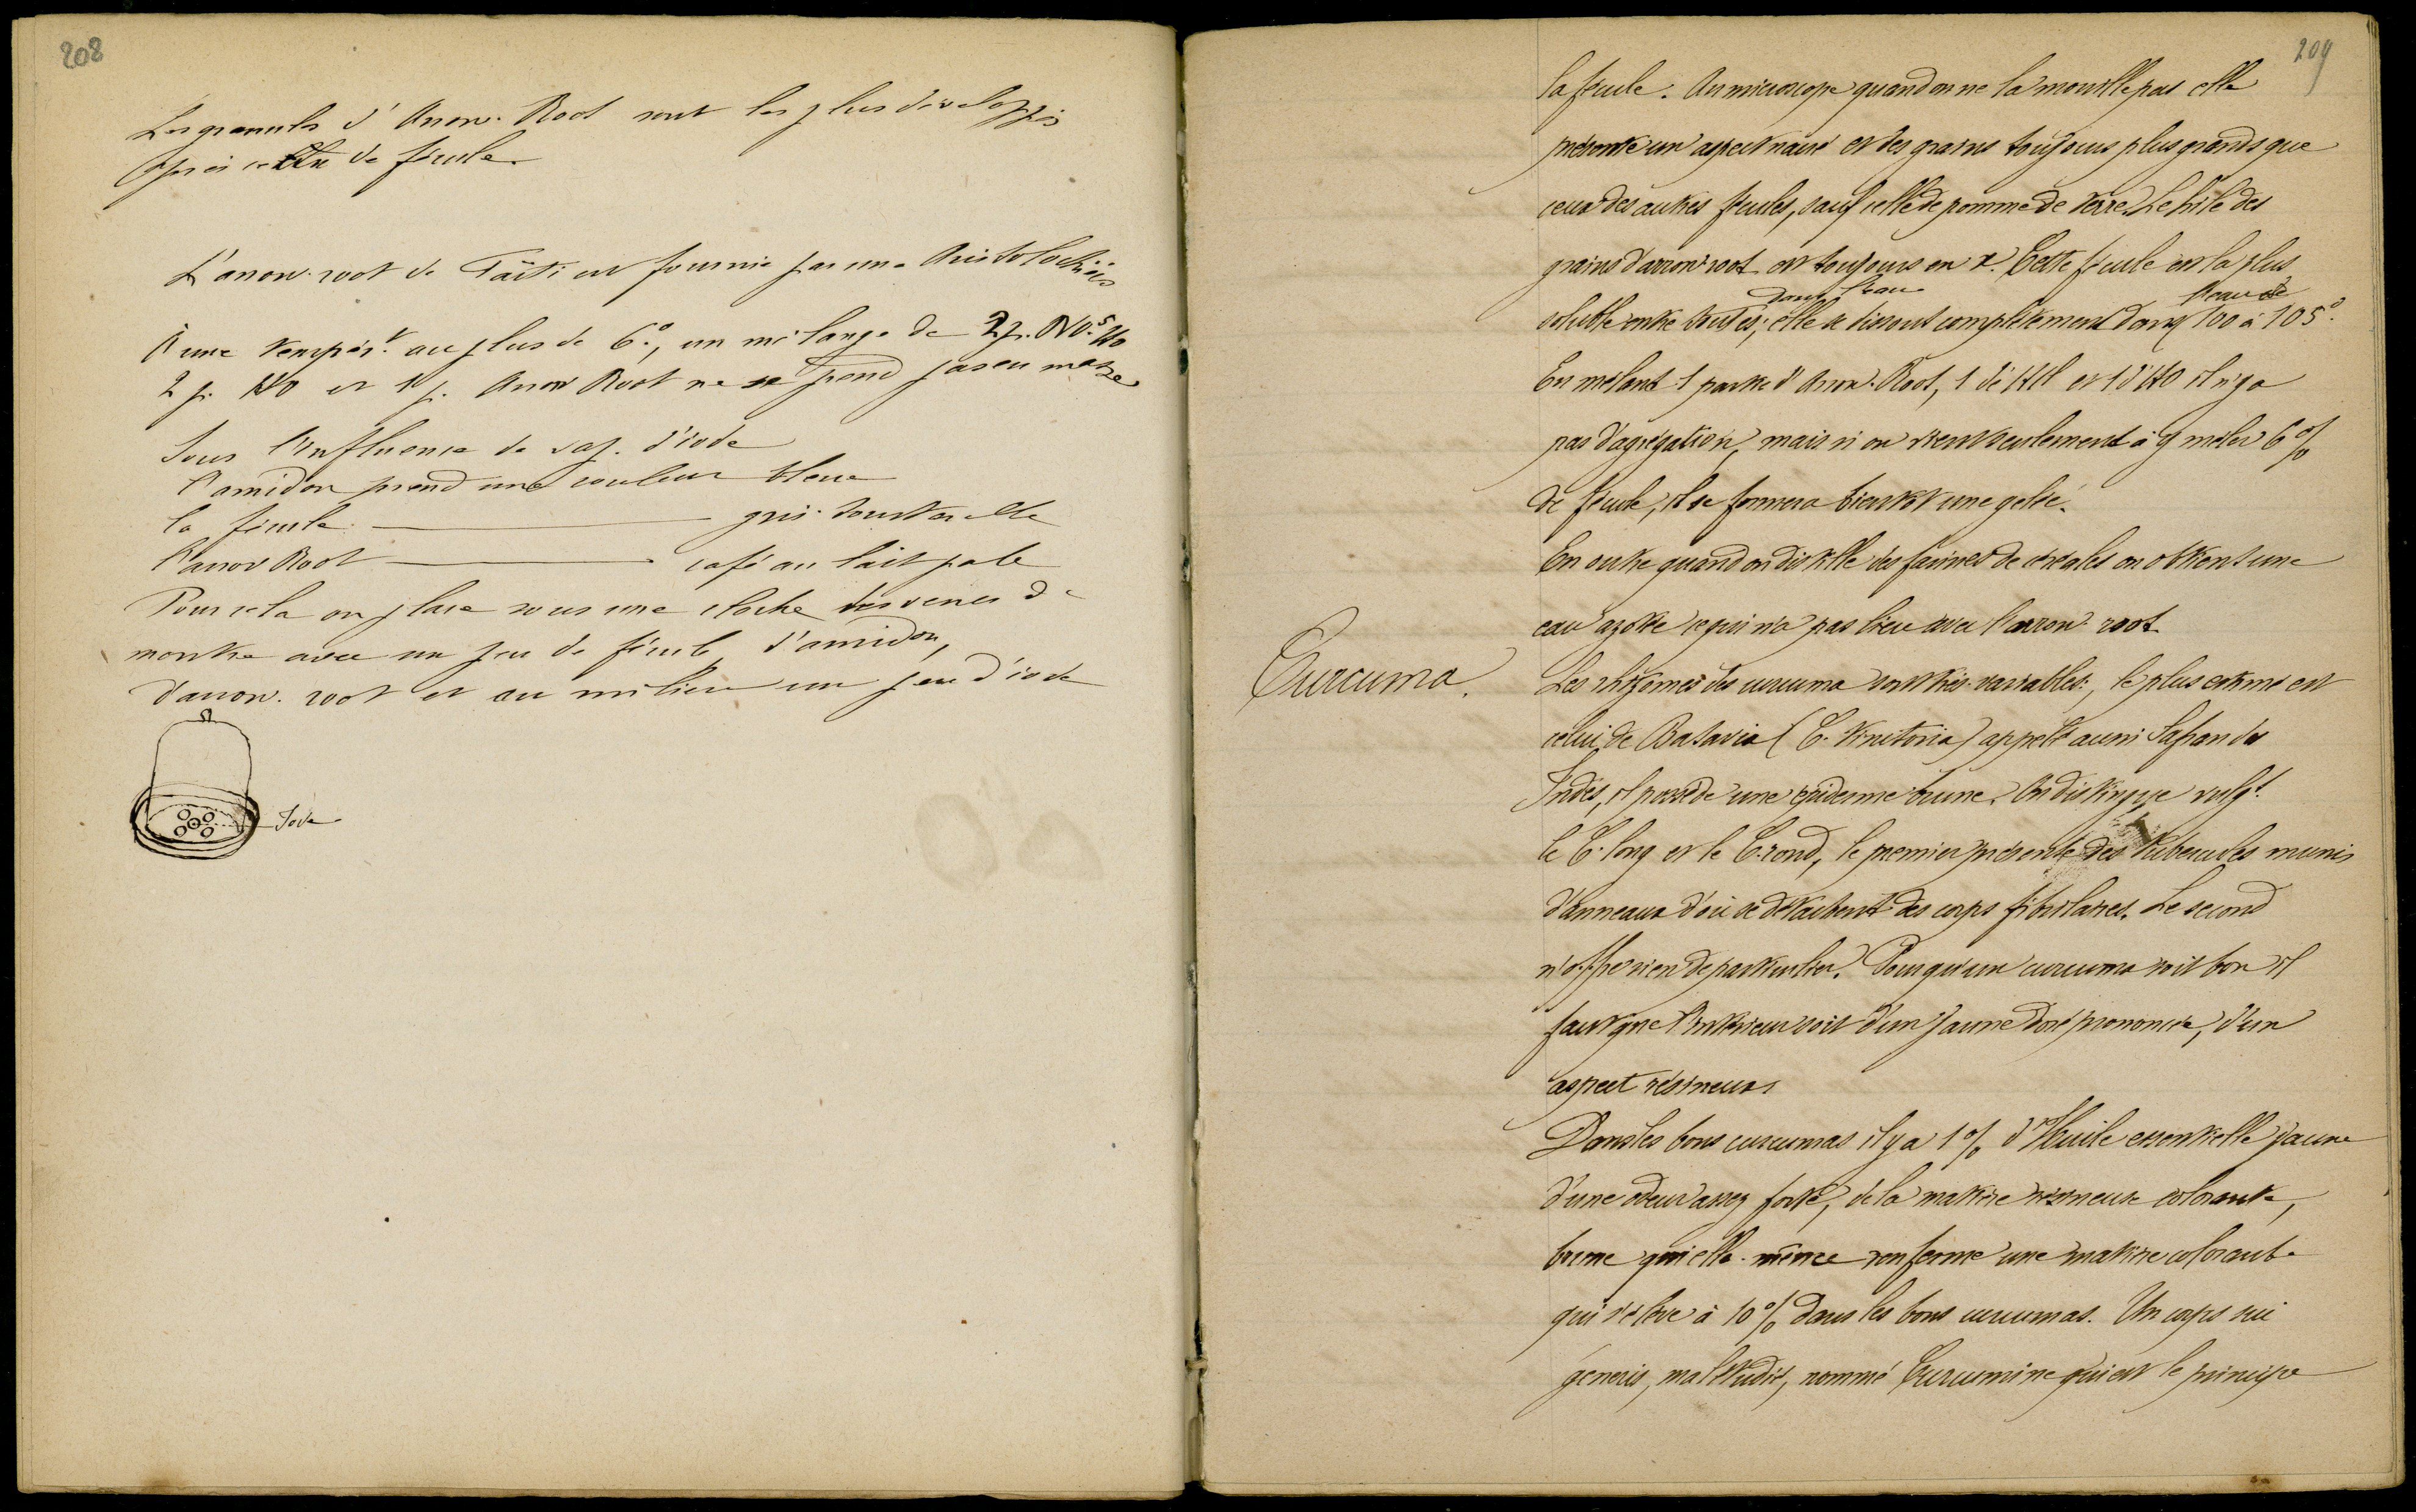 208
Les granules d'Arrow-Root sont les plus développés
après celles de fécule.
L'arrow-root de Taïti est fournie par une Aristolochiées
A une tempér.e au plus de 6°, un mélange de 2 p. NO.5 HO
2 p. HO et 1 p. Arrow Root ne se prend pas en masse
Sous l'influence de vap. d'iode
l'amidon prend une couleur bleue
la fécule — gris-tourterelle
l'arrow Root — café au lait pale
Pour cela on place sous une cloche des verres de
montre avec un peu de fécule, d'amidon,
d'arrow-root et au milieu un peu d'iode
Iode
209
la fécule. Au microscope quand on ne la mouille pas elle
présente un aspect nacré et des grains toujours plus grands que
ceux des autres fécules, sauf celle de pomme de terre. Le hile des
grains d'arrow-root est toujours en x. Cette fécule est la plus
dans l'eau l'eau de
soluble entre toutes; elle se dissout complètement dans 100 à 105°.
En mêlant 1 partie d'Arrow-Root, 1 de HCl et 1 d'HO il n'y a
pas d'agrégation, mais si on vient seulement à y mêler 6%
de fécule, il se formera bientôt une gelée.
En outre quand on distille des farines de céréales on obtient une
eau azotée ce qui n'a pas lieu avec l'arrow-root
Curcuma.
Les rhizomes des curcuma sont très-variables, le plus estimé est
celui de Batavia (C. tinctoria) appelé aussi Safran des
Indes, il possède une épiderme brune. On distingue vulgt.
le C. long et le C. rond, le premier présente des tubercules munis
d'anneaux d'où se détachent des corps fibrilaires. Le second
n'offre rien de particulier. Pour qu'un curcuma soit bon il
faut que l'intérieur soit d'un jaune doré prononcée, d'un
aspect résineux.
Dans les bons curcumas il y a 1% d'Huile essentielle jaune
d'une odeur assez forte, de la matière résineuse colorante,
brune qui elle-même renferme une matière colorante
qui s'élève à 10% dans les bons curcumas. Un corps sui
generis, mal étudié, nommé Curcumine qui est le principe